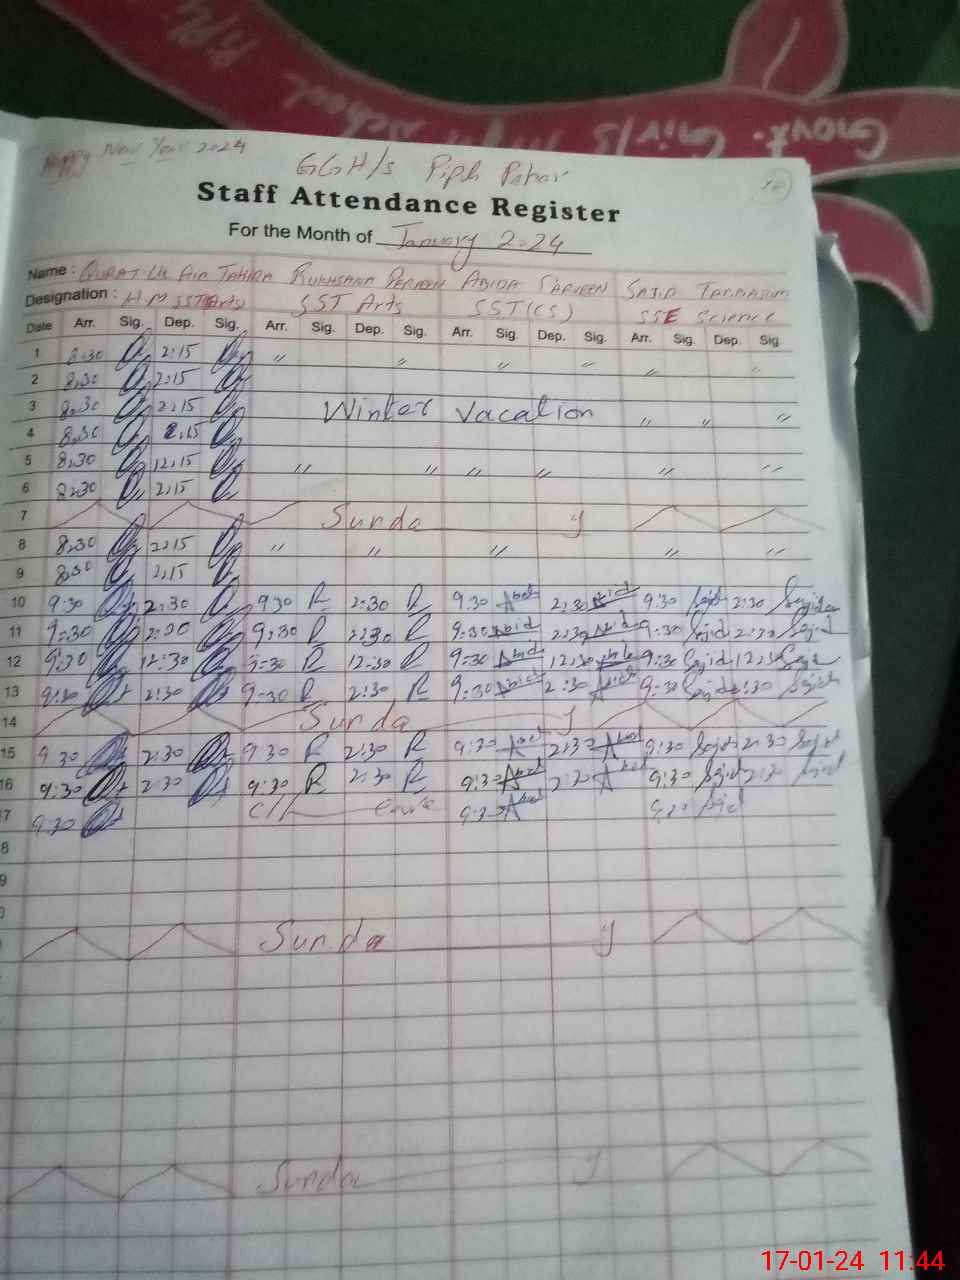 Govt. Girls High School Pipli
Happy New Year 2024
GGH/s Pipli Pahar
Staff Attendance Register
For the Month of January 2024
Name : QURAT UL AIN TAHIRA RUKHSANA PERVEEN ABIDA PARVEEN SAJID TARRANUM
Designation : H M SST Arts SST Arts SST (CS) SSE Science
Date Arr. Sig. Dep. Sig. Arr. Sig. Dep. Sig. Arr. Sig. Dep. Sig. Arr. Sig. Dep. Sig.
1 8:30 2:15 " " " " " "
2 8:30 2:15
3 8:30 2:15 Winter Vacation " " "
4 8:30 2:15
5 8:30 12:15 " " " " " "
6 8:30 2:15
7 Sunday
8 8:30 2:15 " " " " "
9 8:30 2:15
10 9:30 2:30 9:30 R 2:30 R 9:30 Abid 2:30 Abid 9:30 Sajid 2:30 Sajida
11 9:30 2:30 9:30 R 2:30 R 9:30 Abid 2:30 Abid 9:30 Sajid 2:30 Sajid
12 9:30 12:30 9:30 R 12:30 R 9:30 Abid 12:30 Abid 9:30 Sajid 12:30 Sajid
13 9:30 2:30 9:30 R 2:30 R 9:30 Abid 2:30 Abid 9:30 Sajid 2:30 Sajid
14 Sunday
15 9:30 2:30 9:30 R 2:30 R 9:30 Abid 2:30 Abid 9:30 Sajid 2:30 Sajid
16 9:30 2:30 9:30 R 2:30 R 9:30 Abid 2:30 Abid 9:30 Sajid 2:30 Sajid
7 9:30 C/Leave 9:30 Abid 9:30 Sajid
8
9
Sunday
Sunday
17-01-24 11:44